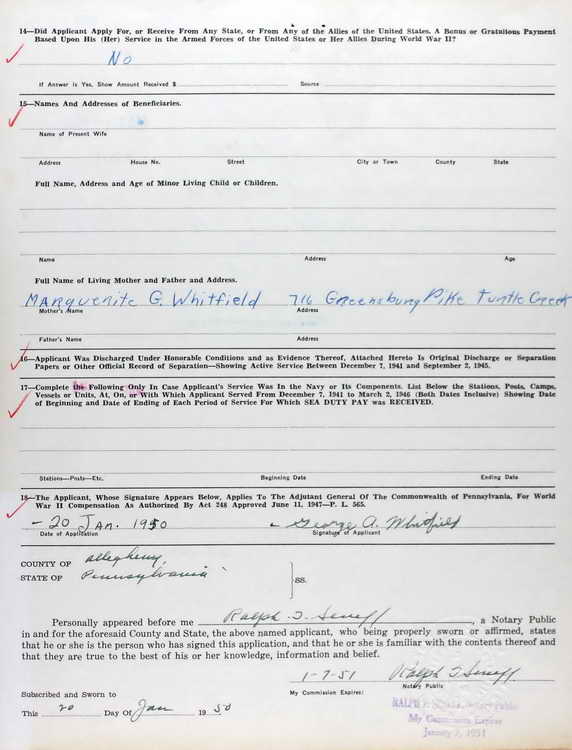 14—Did Applicant Apply For, or Receive From Any State, or From Any of the Allies of the United States, A Bonus or Gratuitous Payment
Based Upon His (Her) Service in the Armed Forces of the United States or Her Allies During World War II?
No
If Answer is Yes, Show Amount Received $ Source
15—Names And Addresses of Beneficiaries.
Name of Present Wife
Address House No. Street City or Town County State
Full Name, Address and Age of Minor Living Child or Children.
Name Address Age
Full Name of Living Mother and Father and Address.
Marguerite G. Whitfield 716 Greensburg Pike Turtle Creek
Mother's Name Address
Father's Name Address
16—Applicant Was Discharged Under Honorable Conditions and as Evidence Thereof, Attached Hereto Is Original Discharge or Separation
Papers or Other Official Record of Separation—Showing Active Service Between December 7, 1941 and September 2, 1945.
17—Complete the Following Only In Case Applicant's Service Was In the Navy or Its Components. List Below the Stations, Posts, Camps,
Vessels or Units, At, On, or With Which Applicant Served From December 7, 1941 to March 2, 1946 (Both Dates Inclusive) Showing Date
of Beginning and Date of Ending of Each Period of Service For Which SEA DUTY PAY was RECEIVED.
Stations—Posts—Etc. Beginning Date Ending Date
18—The Applicant, Whose Signature Appears Below, Applies To The Adjutant General Of The Commonwealth of Pennsylvania, For World
War II Compensation As Authorized By Act 248 Approved June 11, 1947—P. L. 565.
- 20 Jan. 1950 George A. Whitfield
Date of Application Signature of Applicant
COUNTY OF Allegheny,
STATE OF Pennsylvania
SS.
Personally appeared before me Ralph J. Seneff, a Notary Public
in and for the aforesaid County and State, the above named applicant, who being properly sworn or affirmed, states
that he or she is the person who has signed this application, and that he or she is familiar with the contents thereof and
that they are true to the best of his or her knowledge, information and belief.
1-7-51 Ralph J. Seneff
My Commission Expires: Notary Public
Subscribed and Sworn to
This 20 Day Of Jan 1950
My Commission Expires
January 7, 1951